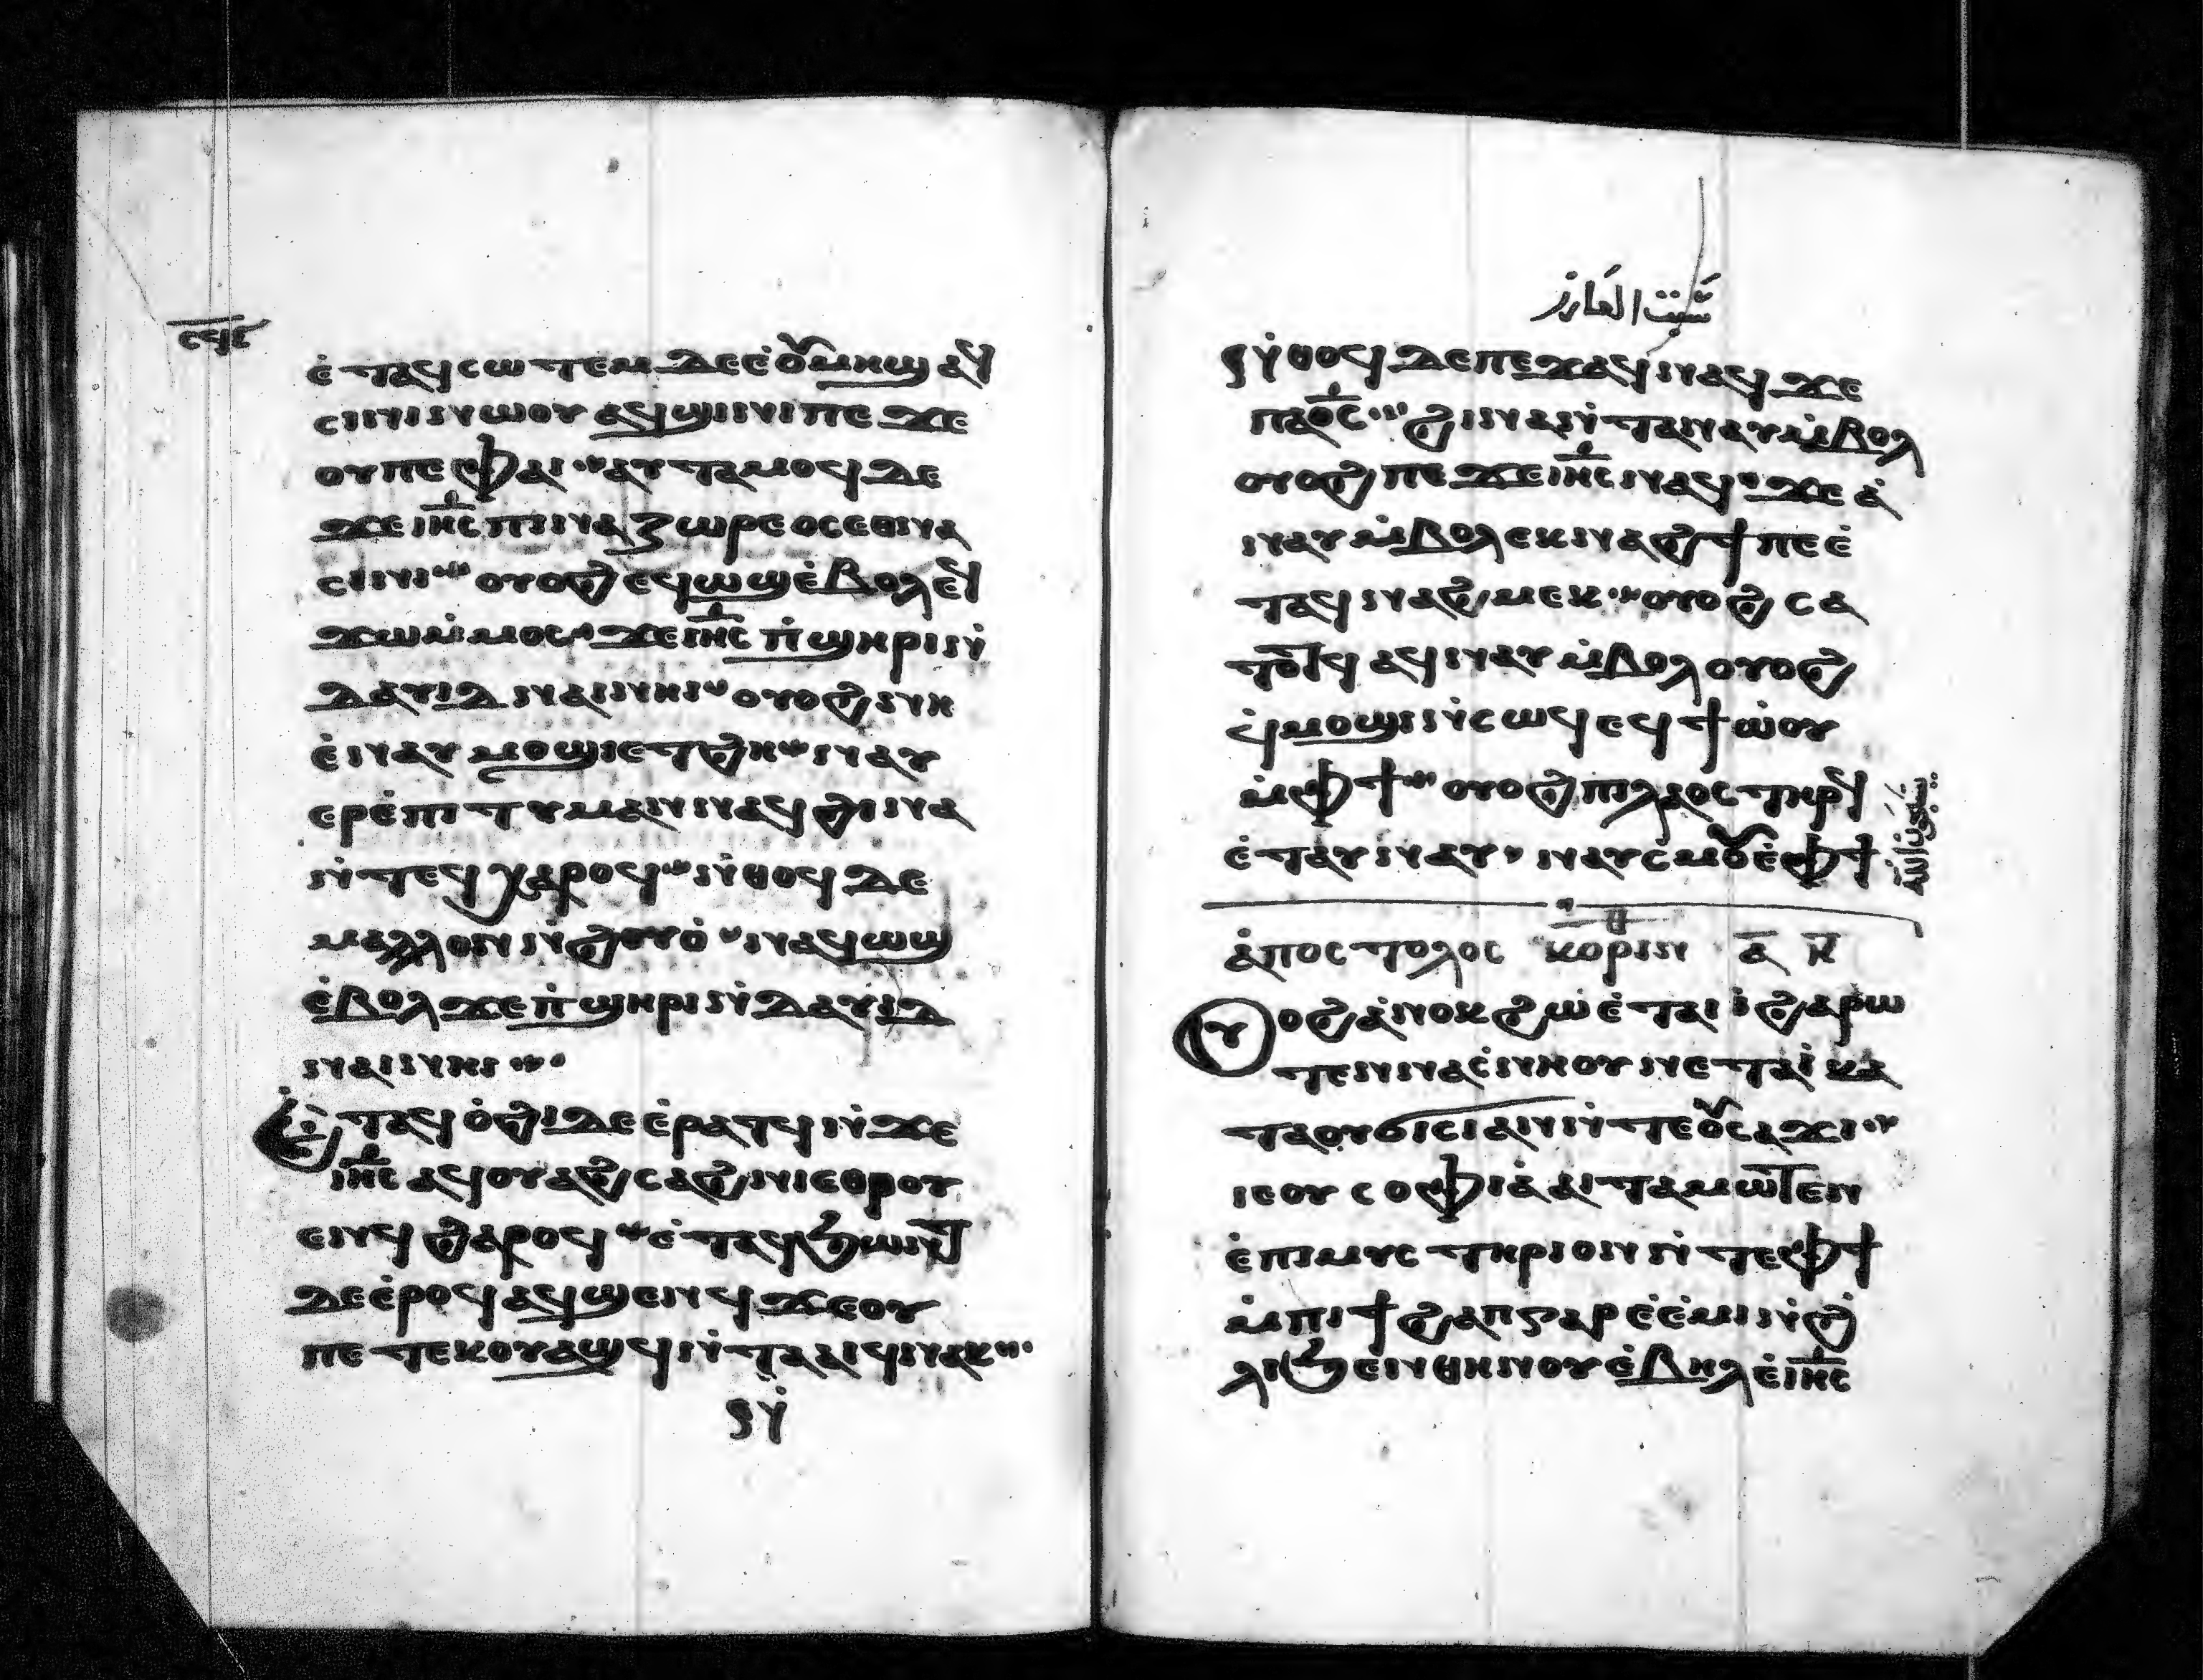 ⲉ̀ⲧⲁϥⲥⲱⲧⲉⲙ ⲇⲉ ⲉ̀ⲟⲩⲙⲏϣ ⲁϥ
ⲥⲓⲛⲓⲛⲱⲟⲩ ⲁϥϣⲓⲛⲓ ⲡⲉ ϫⲉ
ⲟⲩ ⲡⲉ ⲫⲁⲓ ⲁⲩⲧⲁⲙⲟϥ ⲇⲉ
ϫⲉ ⲓⲏ̅ⲥ ⲡⲓⲛⲁⲍⲱⲣⲉⲟⲥ ⲉⲑⲛⲁ
ⲥⲓⲛⲓ ⲟⲩⲟϩ ⲉϥⲱϣ ⲉ̀ⲃⲟⲗ ⲉϥ
ϫⲱ ⲙ̀ⲙⲟⲥ ϫⲉ ⲓⲏ̅ⲥ ⲡ̀ϣⲏⲣⲓ ⲛ̀
ⲇⲁⲩⲓⲇ ⲛⲁⲓ ⲛⲏⲓ ⲟⲩⲟϩ ⲛⲏ
ⲉ̀ⲛⲁⲩⲙⲟϣⲓ ⲉⲧϩⲏ ⲛⲁⲩ
ⲉⲣⲉ̀ⲡⲓⲧⲩⲙⲁⲛ ⲛⲁϥ ϩⲓⲛⲁ
ⲛ̀ⲧⲉϥⲭⲁⲣⲟϥ ⲛ̀ⲑⲟϥ ⲇⲉ
ⲙⲁⲗⲗⲟⲛ ⲛ̀ϩⲟⲩⲟ̀ ⲛⲁϥⲱϣ
ⲉ̀ⲃⲟⲗ ϫⲉ ⲡ̀ϣⲏⲣⲓ ⲛ̀ⲇⲁⲩⲓⲇ
ⲛⲁⲓ ⲛⲏⲓ
ⲉ̀ⲧⲁϥⲟ̀ϩⲓ ⲇⲉ ⲉ̀ⲣⲁⲧϥ ⲛ̀ϫⲉ
ⲓⲏ̅ⲥ ⲁϥⲟⲩⲁϩⲥⲁϩⲛⲓ ⲉⲑⲣⲟⲩ
ⲉⲛϥ ϩⲁⲣⲟϥ ⲉ̀ⲧⲁϥϧⲱⲛⲧ
ⲇⲉ ⲉ̀ⲣⲟϥ ⲁϥϣⲉⲛϥ ϫⲉ ⲟⲩ
ⲡⲉⲧⲉⲕⲟⲩⲁϣϥ ⲛ̀ⲧⲁⲁⲓϥ ⲛⲁⲕ
ⲛ̀
سبت العازر
ⲛ̀ⲑⲟϥ ⲇⲉ ⲡⲉϫⲁϥ ⲛⲁϥ ϫⲉ
ⲡⲁⲟ̅ⲥ ϩⲓⲛⲁ ⲛ̀ⲧⲁⲛⲁⲩ ⲙ̀ⲃⲟⲗ
ⲟⲩⲟϩ ⲡⲉϫⲉ ⲓⲏ̅ⲥ ⲛⲁϥ ϫⲉ ⲁ̀
ⲛⲁⲩ ⲙ̀ⲃⲟⲗ ⲉⲕⲛⲁϩϯ ⲡⲉ ⲉ̀
ⲧⲁϥⲛⲁϩⲙⲉⲕ ⲟⲩⲟϩ ⲥⲁ
ⲧⲟⲧϥ ⲁϥⲛⲁⲩ ⲙ̀ⲃⲟⲗ ⲟⲩⲟϩ
ϥ̀ⲙⲟϣⲓ ⲛ̀ⲥⲱϥ ⲉϥϯⲱ̀ⲟⲩ
ⲙ̀ⲫϯ ⲟⲩⲟϩ ⲡⲓⲗⲁⲟⲥ ⲧⲏⲣϥ
ⲉ̀ⲧⲁⲩⲛⲁⲩ ⲛⲁⲩⲥ̀ⲙⲟⲩ ⲉ̀ⲫϯ
ⲁ̀ⲡⲟⲥⲧⲟⲗⲟⲥ ⲕⲟⲣⲓⲛⲑ ⲁ̅ ⲕ̅
ⲟⲩⲟϩ ⲁ̀ⲛⲟⲕ ϩⲱ ⲉ̀ⲧⲁⲓⲓ̀ ϩⲁⲣⲱ
ⲧⲉⲛ ⲛⲁⲥ̀ⲛⲏⲟⲩ ⲛⲉⲧⲁⲓⲓ̀ ⲕⲁ
ⲧⲁ ⲟⲩϭⲓⲥⲓ ⲁⲛ ⲛ̀ⲧⲉ ⲟⲩⲥⲁϫⲓ
ⲓⲉ ⲟⲩⲥⲟⲫⲓⲁ̀ ⲁⲓⲧⲁⲙⲱⲧⲉⲛ
ⲉ̀ⲡⲓⲙⲩⲥⲧⲏⲣⲓⲟⲛ ⲛ̀ⲧⲉ ⲫϯ
ⲙ̀ⲡⲓϯϩⲁⲡ ⲅⲁⲣ ⲉ̀ⲉ̀ⲙⲓ ⲛ̀ϩ̀
ⲗⲓ ϧⲉⲛ ⲑⲏⲛⲟⲩ ⲉ̀ⲃⲏⲗ ⲉ̀ⲓⲏ̅ⲥ